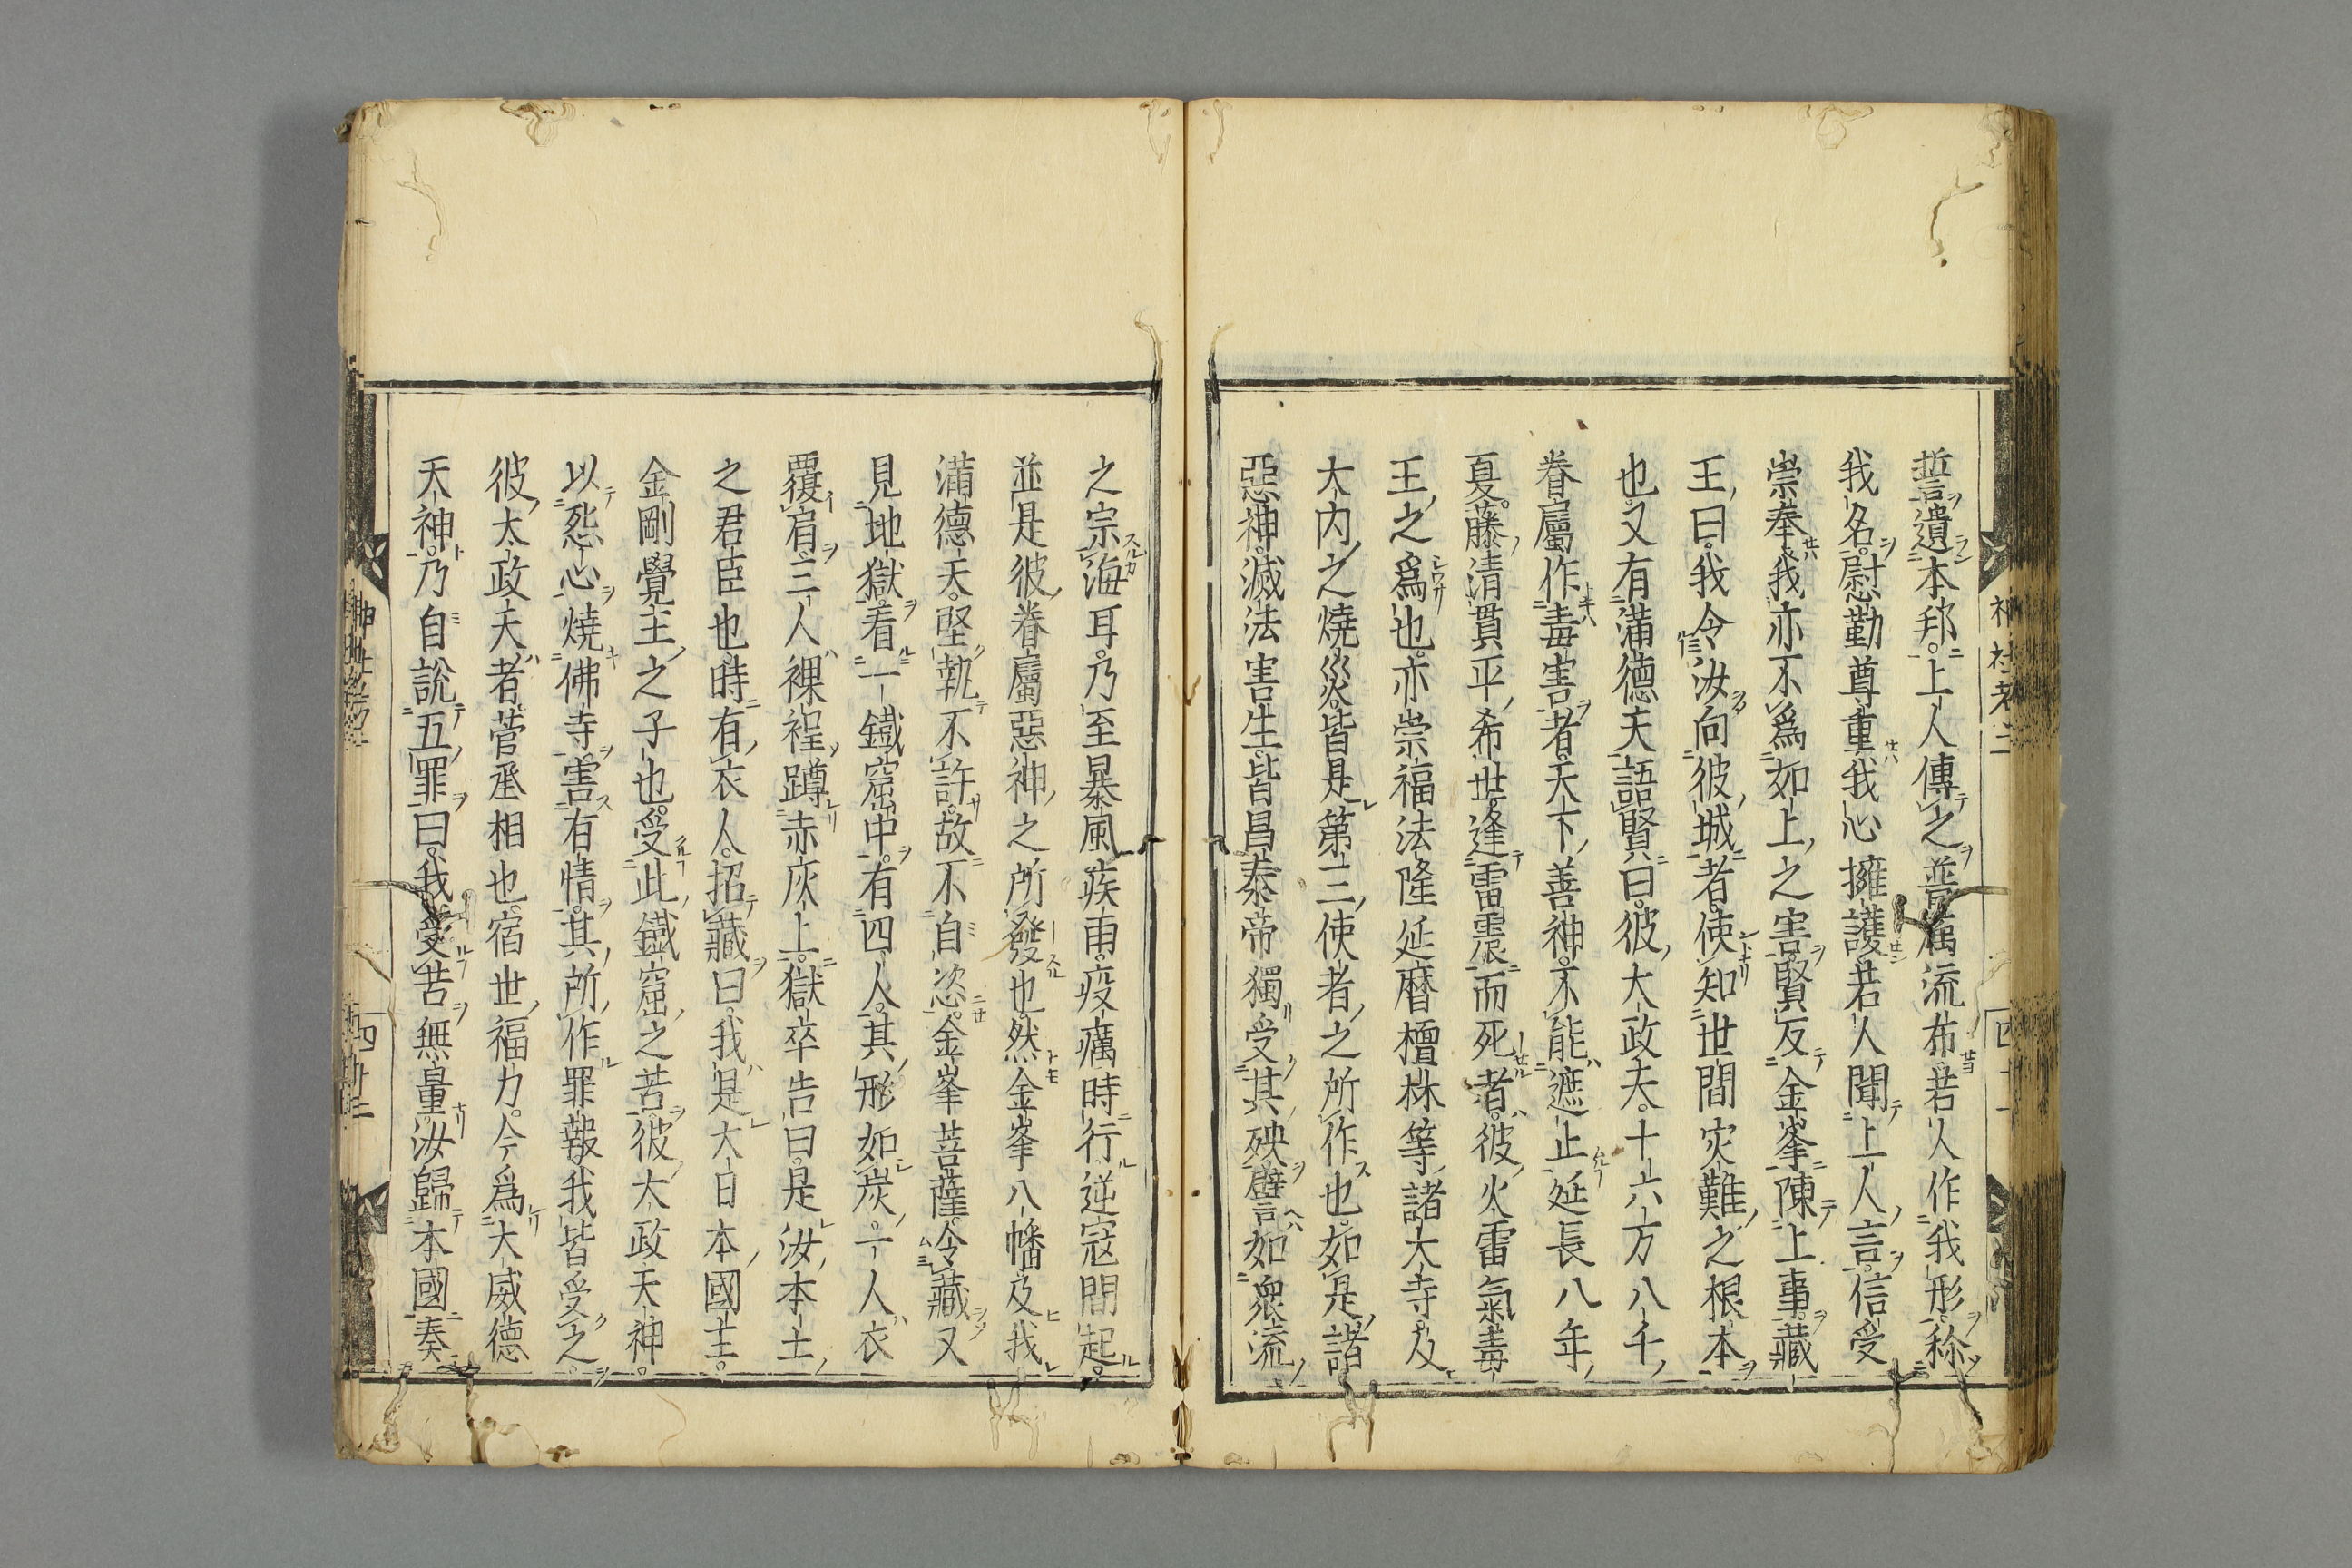 誓遺本邦。上人傳之普属流布。若人作我形。称
我名。慰勤尊重我心擁護。若人聞上人言。信受
崇奉。我亦不爲如上之害。賢反金峯陳上事。藏
王曰。我令汝向彼城者。使知世間灾難之根本
也。又有滿德天語賢曰。彼大政天。十六万八千
眷屬作毒害者。天下善神。不能遮止延長八年
夏。藤清貫平希世。逢雷震而死者。彼火雷氣毒
王之爲也。亦崇福法隆延曆檀林等諸大寺。及
大内之燒災。皆是第三使者之所作也。如是諸
惡神。滅法害生。皆昌泰帝獨受其殃。譬如衆流
之宗海耳。乃至暴風疾雨。疫癘時行逆寇間起。
並是彼眷屬惡神之所發也。然金峯八幡及我
滿德天。堅執不許。故不自恣。金峯菩薩。令藏又
見地獄。看一鐵窟中。有四人。其形如炭。一人衣
覆肩三人裸裎蹲赤灰上。獄卒告曰。是汝本土
之君臣也。時有衣人。招藏曰。我是大日本國主。
金剛覺主之子也。受此鐵窟之苦。彼太政天神。
以怨心燒佛寺害有情。其所作罪報我皆受之。
彼太政天者。菅丞相也。宿世福力。今爲大威德
天神。乃自說五罪曰。我受苦無量。汝歸本國奏
神社考二
四十一